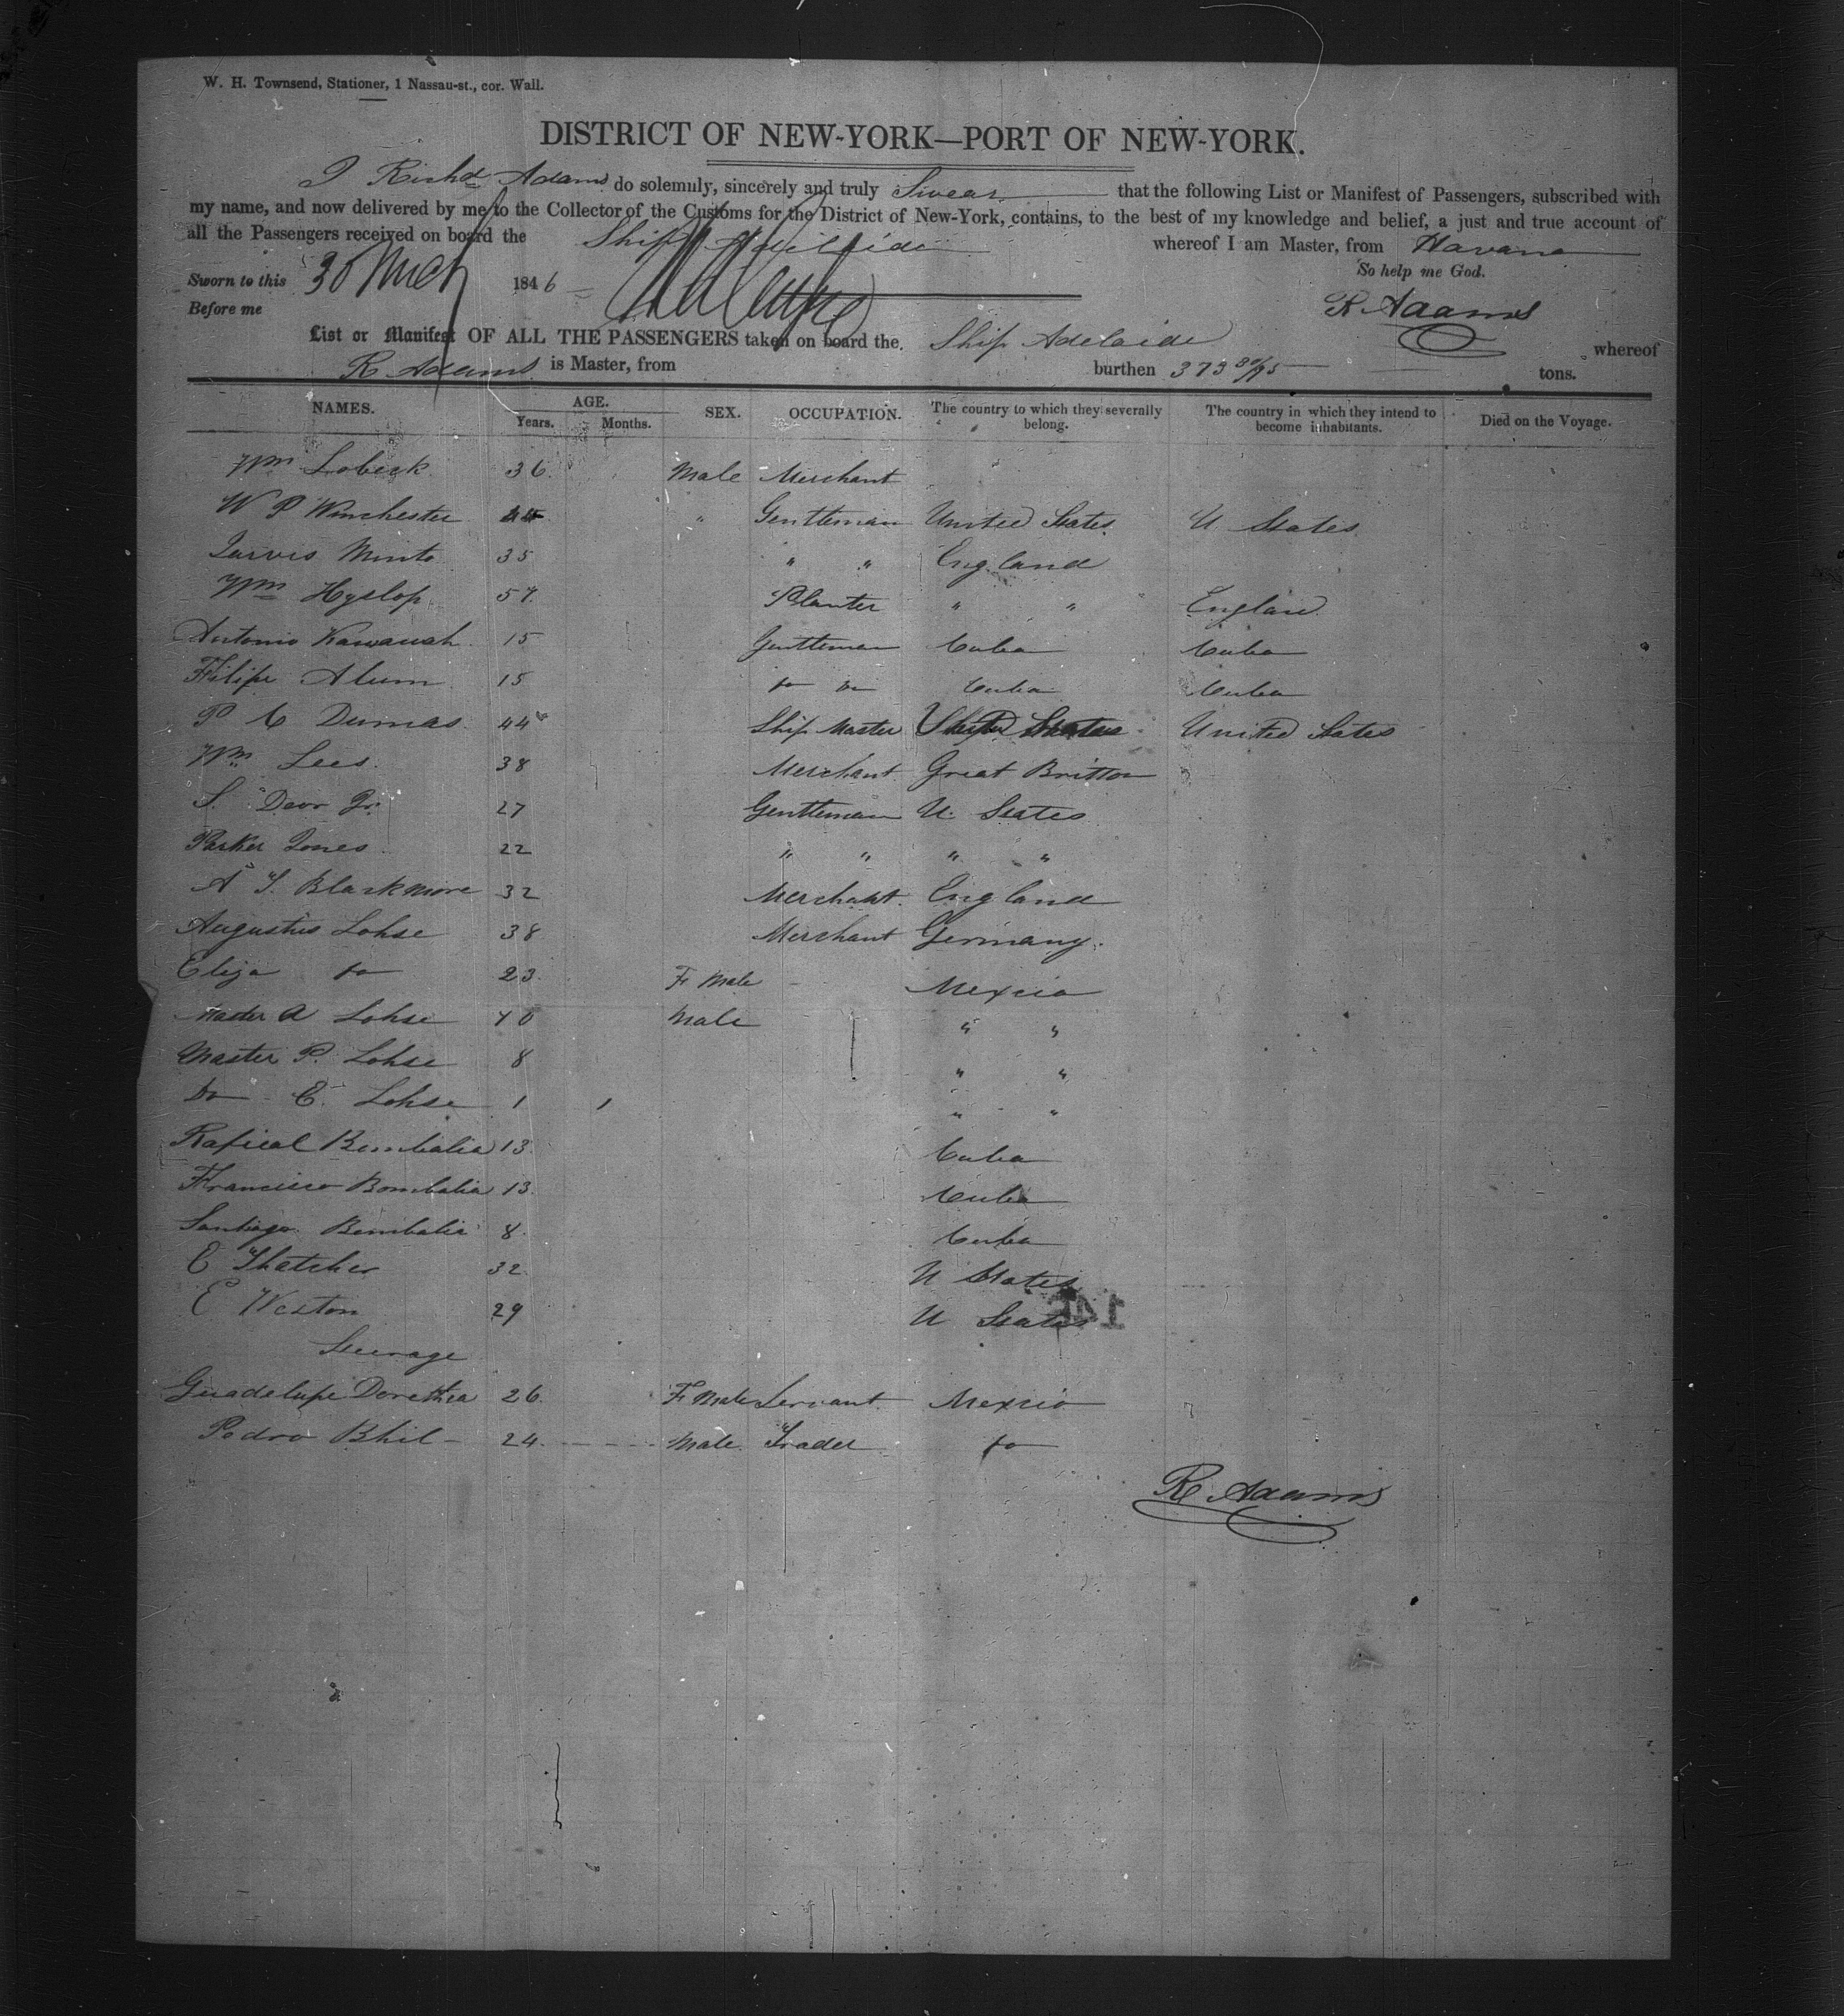 W. H. Townsend, Stationer, 1 Nassau-st., cor. Wall.
DISTRICT OF NEW-YORK—PORT OF NEW-YORK.
I Richd Adams do solemnly, sincerely and truly Swear that the following List or Manifest of Passengers, subscribed with
my name, and now delivered by me to the Collector of the Customs for the District of New-York, contains, to the best of my knowledge and belief, a just and true account of
all the Passengers received on board the Ship whereof I am Master, from Havana
So help me God.
Sworn to this 30 1846
Before me
R Adams
List or Manifest OF ALL THE PASSENGERS taken on board the Ship Adelaide whereof
R Adams is Master, from burthen 373 80/95 tons.
NAMES. AGE. SEX. OCCUPATION. The country to which they severally belong. The country in which they intend to become inhabitants. Died on the Voyage.
Years. Months.
Wm Lobeck 36 Male Merchant
W P Winchester Gentleman United States U States
Jarvis Minto 35 " " England
Wm Hyslop 57 Planter " " England
Antonio 15 Gentleman Cuba Cuba
Filipe Alum 15 do do Cuba Cuba
P C Dumas 44 Ship Master United States
Wm Lees 38 Merchant Great Britton
S. Jr 27 Gentleman U. States
Parker Jones 22 " " " "
A S. Blackmore 32 Merchant England
Augustus Lohse 38 Merchant Germany.
Eliza do 23 F Male Mexcio
Master A Lohse Male " "
Master P. Lohse 8 " "
Do E. Lohse 1 1 " "
Rafieal Bombalia 13 Cuba
Francisco Bombalia 13 Cuba
Santiago Bombalia 8 Cuba
E Thatcher 32 U States
E Weston 29 U States
Steerage
Guadelupe Dorethea 26 F Male Servant Mexcio
Pedro Bhil 24 Male Trader do
R Adams